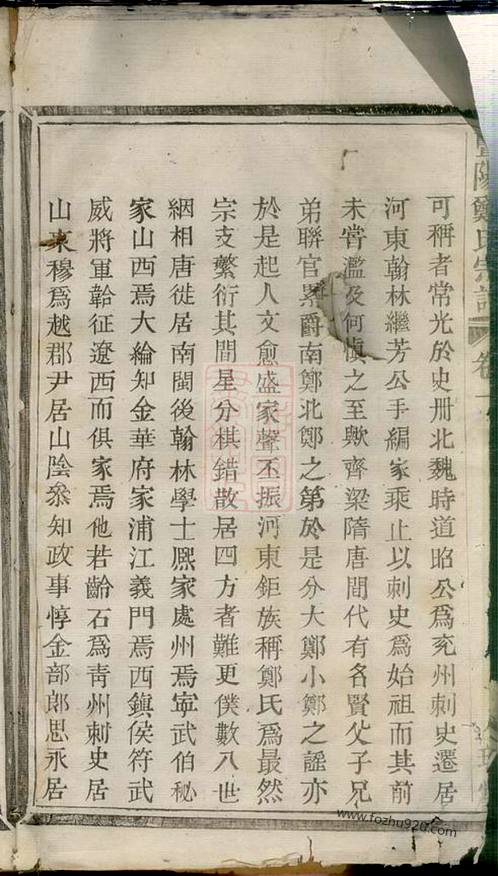 暨陽鄭氏宗譜 卷一
可稱者常光於史册北魏時道昭公爲兖州刺史遷居
河東翰林繼芳公手編家乘止以刺史爲始祖而其前
未嘗濫及何慎之至歟齊梁隋唐間代有各賢父子兄
弟聯官累爵南鄭北鄭之第於是分大鄭小鄭之謡亦
於是起人文愈盛家聲丕振河東鉅族稱鄭氏爲最然
宗支繁衍其間星分棋錯散居四方者難更僕數八世
絪相唐徙居南閩後翰林學士熈家處州焉寕武伯秘
家山西焉大綸知金華府家浦江義門焉西鎮侯符武
威將軍韐征遼西而俱家焉他若齡石爲靑州刺史居
山東穆爲越郡尹居山陰叅知政事惇金部郎思永居
www.fozhu920.com